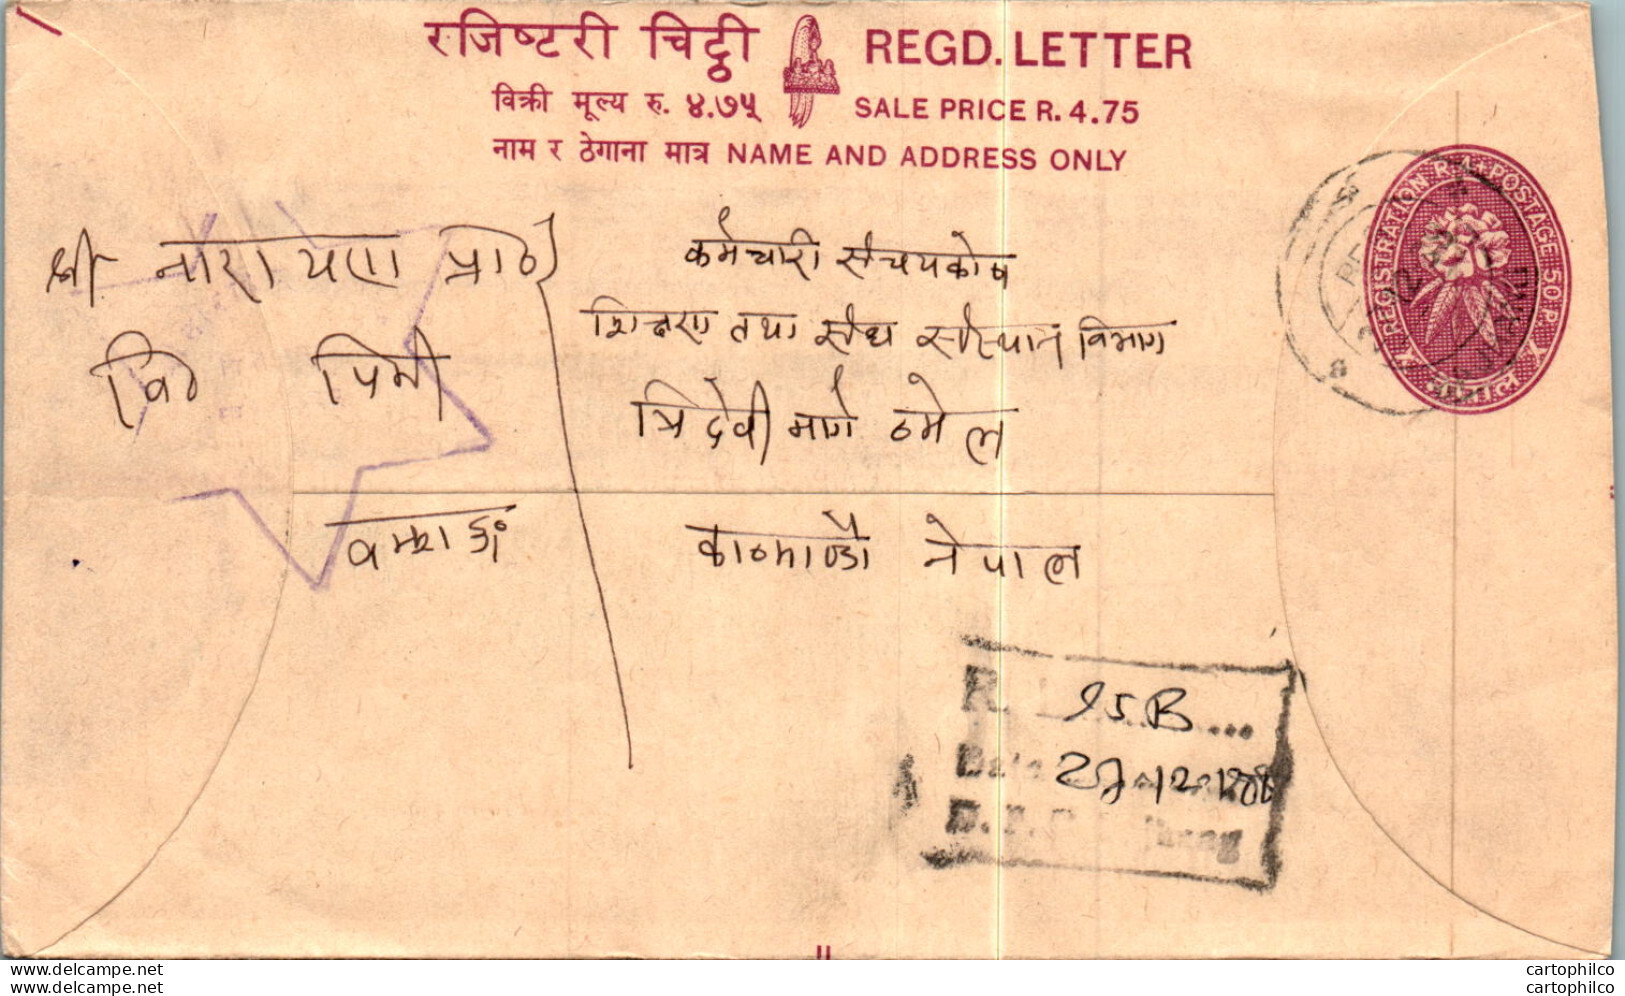 रजिष्टरी चिट्ठी REGD. LETTER
विक्री मूल्य रु. ४.७५ SALE PRICE R. 4.75
नाम र ठेगाना मात्र NAME AND ADDRESS ONLY
REGISTRATION R.4 POSTAGE 50 P.
श्री नारायण प्रा०
वि० पिमी
कर्मचारी संचयकोष
शिक्षण तथा संघ संस्थान विभाग
त्रिदेवी मार्ग ठमेल
काठमाण्डौ नेपाल
R.
Date
www.delcampe.net
www.delcampe.net
cartophilco
cartophilco